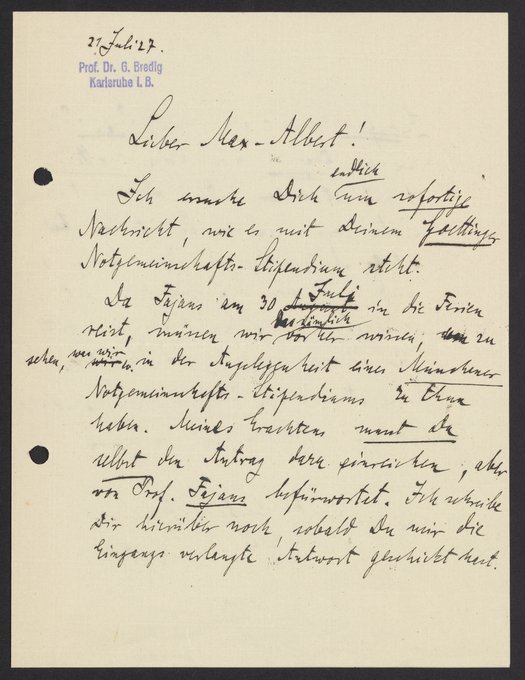 21 Juli 27.
Prof. Dr. G. Bredig
Karlsruhe i. B.
Lieber Max-Albert!
endlich
Ich ersuche Dich um sofortige
Nachricht, wie es mit Deinem Goettinger
Notgemeinschafts-Stipendium steht.
Juli
Da Fajans am 30 August in die Ferien
reist, müssen wir vorher wissen, um zu
sehen, was wir in der Angelegenheit eines Münchener
Notgemeinschafts-Stipendiums zu thun
haben. Meines Erachtens musst Du
selbst den Antrag dazu einreichen, aber
von Prof. Fajans befürwortet. Ich schreibe
Dir hierüber noch, sobald Du mir die
Eingangs verlangte Antwort geschickt hast.